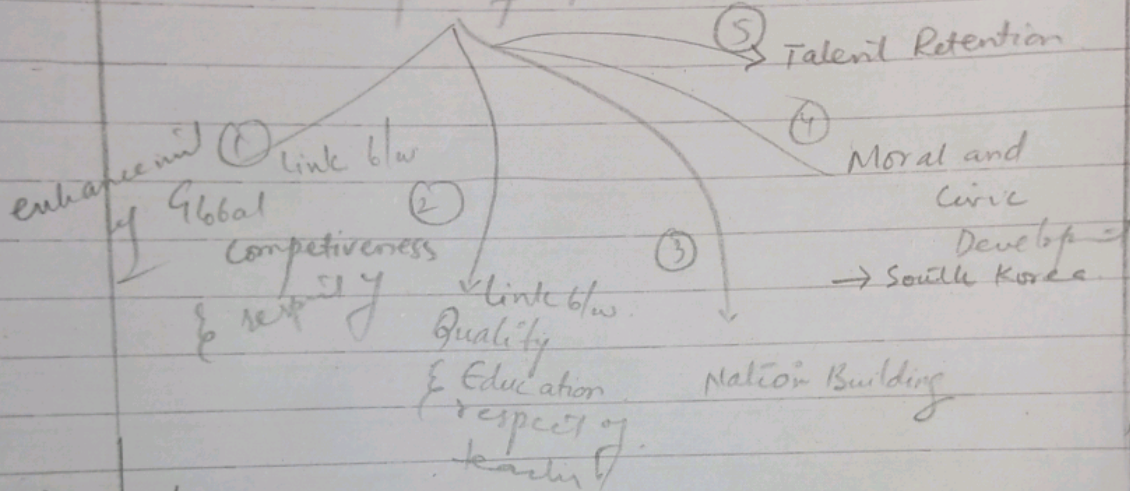 ⑤ Talent Retention
④
Moral and
Civic
Develop
→ South Korea
enhancement ① link b/w
of Global
Competiveness
&
②
link b/w.
Quality
& Education
respect of
③
Nation Building